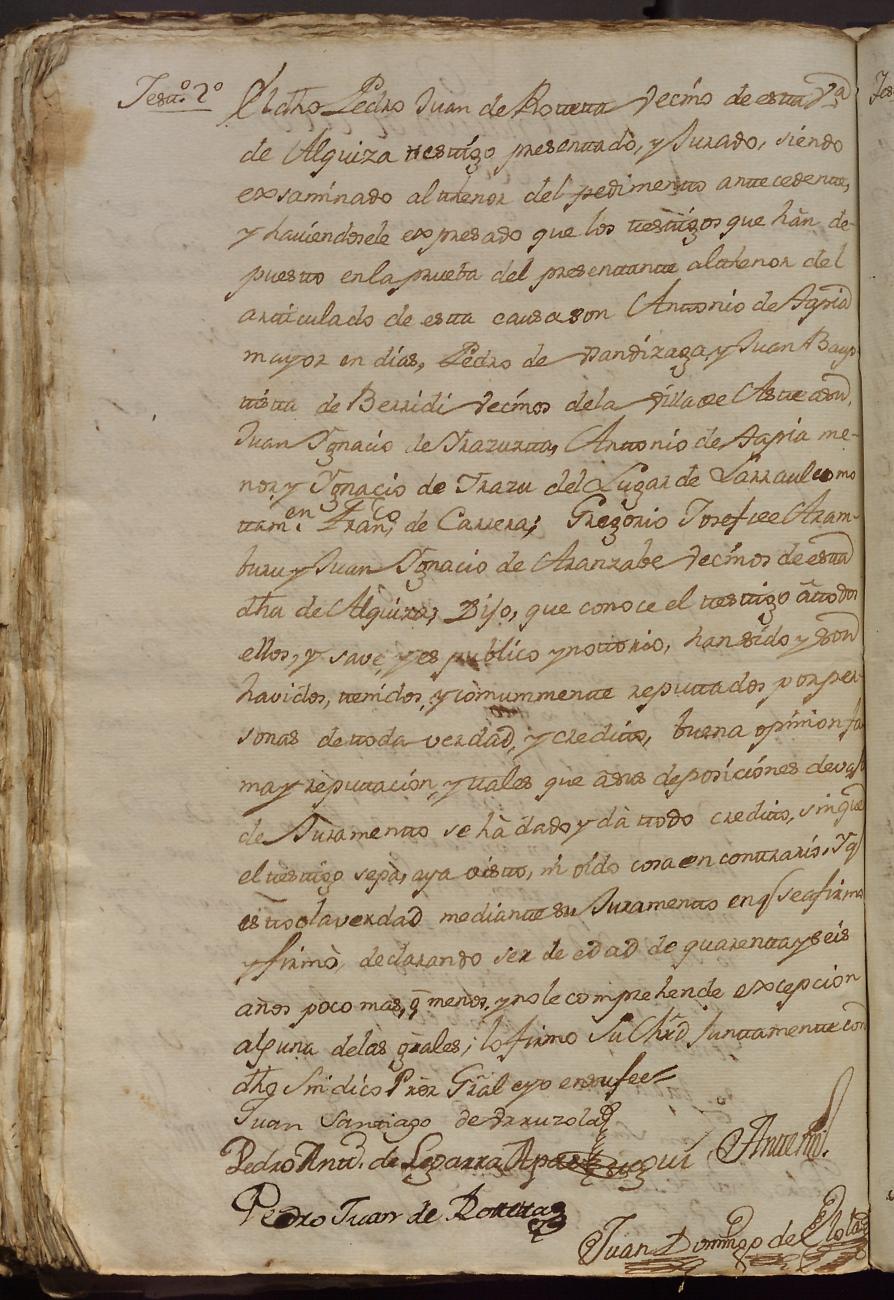 Testº. 2º
El dho Pedro Juan de Rotteta vecino de esta Vª
de Alquiza testigo presentado, y Jurado, siendo
exsaminado al thenor del pedimento antecedente,
y haviendosele expresado que los testigos que hàn de-
puesto en la prueba del presentante al thenor del
articulado de esta causa son Antonio de Agria
mayor en dias, Pedro de Yandizaga, y Juan Bap-
tista de Berridi vecinos de la villa de Asteasu,
Juan Ygnacio de Yrazuzta, Antonio de Agria me-
nor, y Ygnacio de Yrazu del Lugar de Larraul como
tamen. Franco de Carrera; Gregorio Josef de Aram-
buru y Juan Ygnacio de Aranzabe vecinos de esta
dha de Alquiza; Dijo, que conoce el testigo â todos
ellos, y save, y es publico y nottorio, han sido y son
havidos, tenidos, y comummente reputtados por per-
sonas de toda verdad, y credito, buena opinion fa
ma y reputtacion, y tales que â sus deposiciònes devajo
de Juramento se hà dado y dà ttodo credito, sin que
el testigo sepa, aya visto, ni oido cosa en contrario. Y q
esto es la verdad mediante su Juramento en q se afirmò
y firmò, declarando ser de edad de quarenta y seis
años poco mas, ò menos, y no le comprehende excepcion
alguna de las grales; lo firmo su Mrd juntamente con
dho Sindico Pror Gral e yo en su fee=
Juan Santiago de
Pedro Antt. de Legarra Antemi.
Pedro Juan de Rotteta
Juan Domingo de